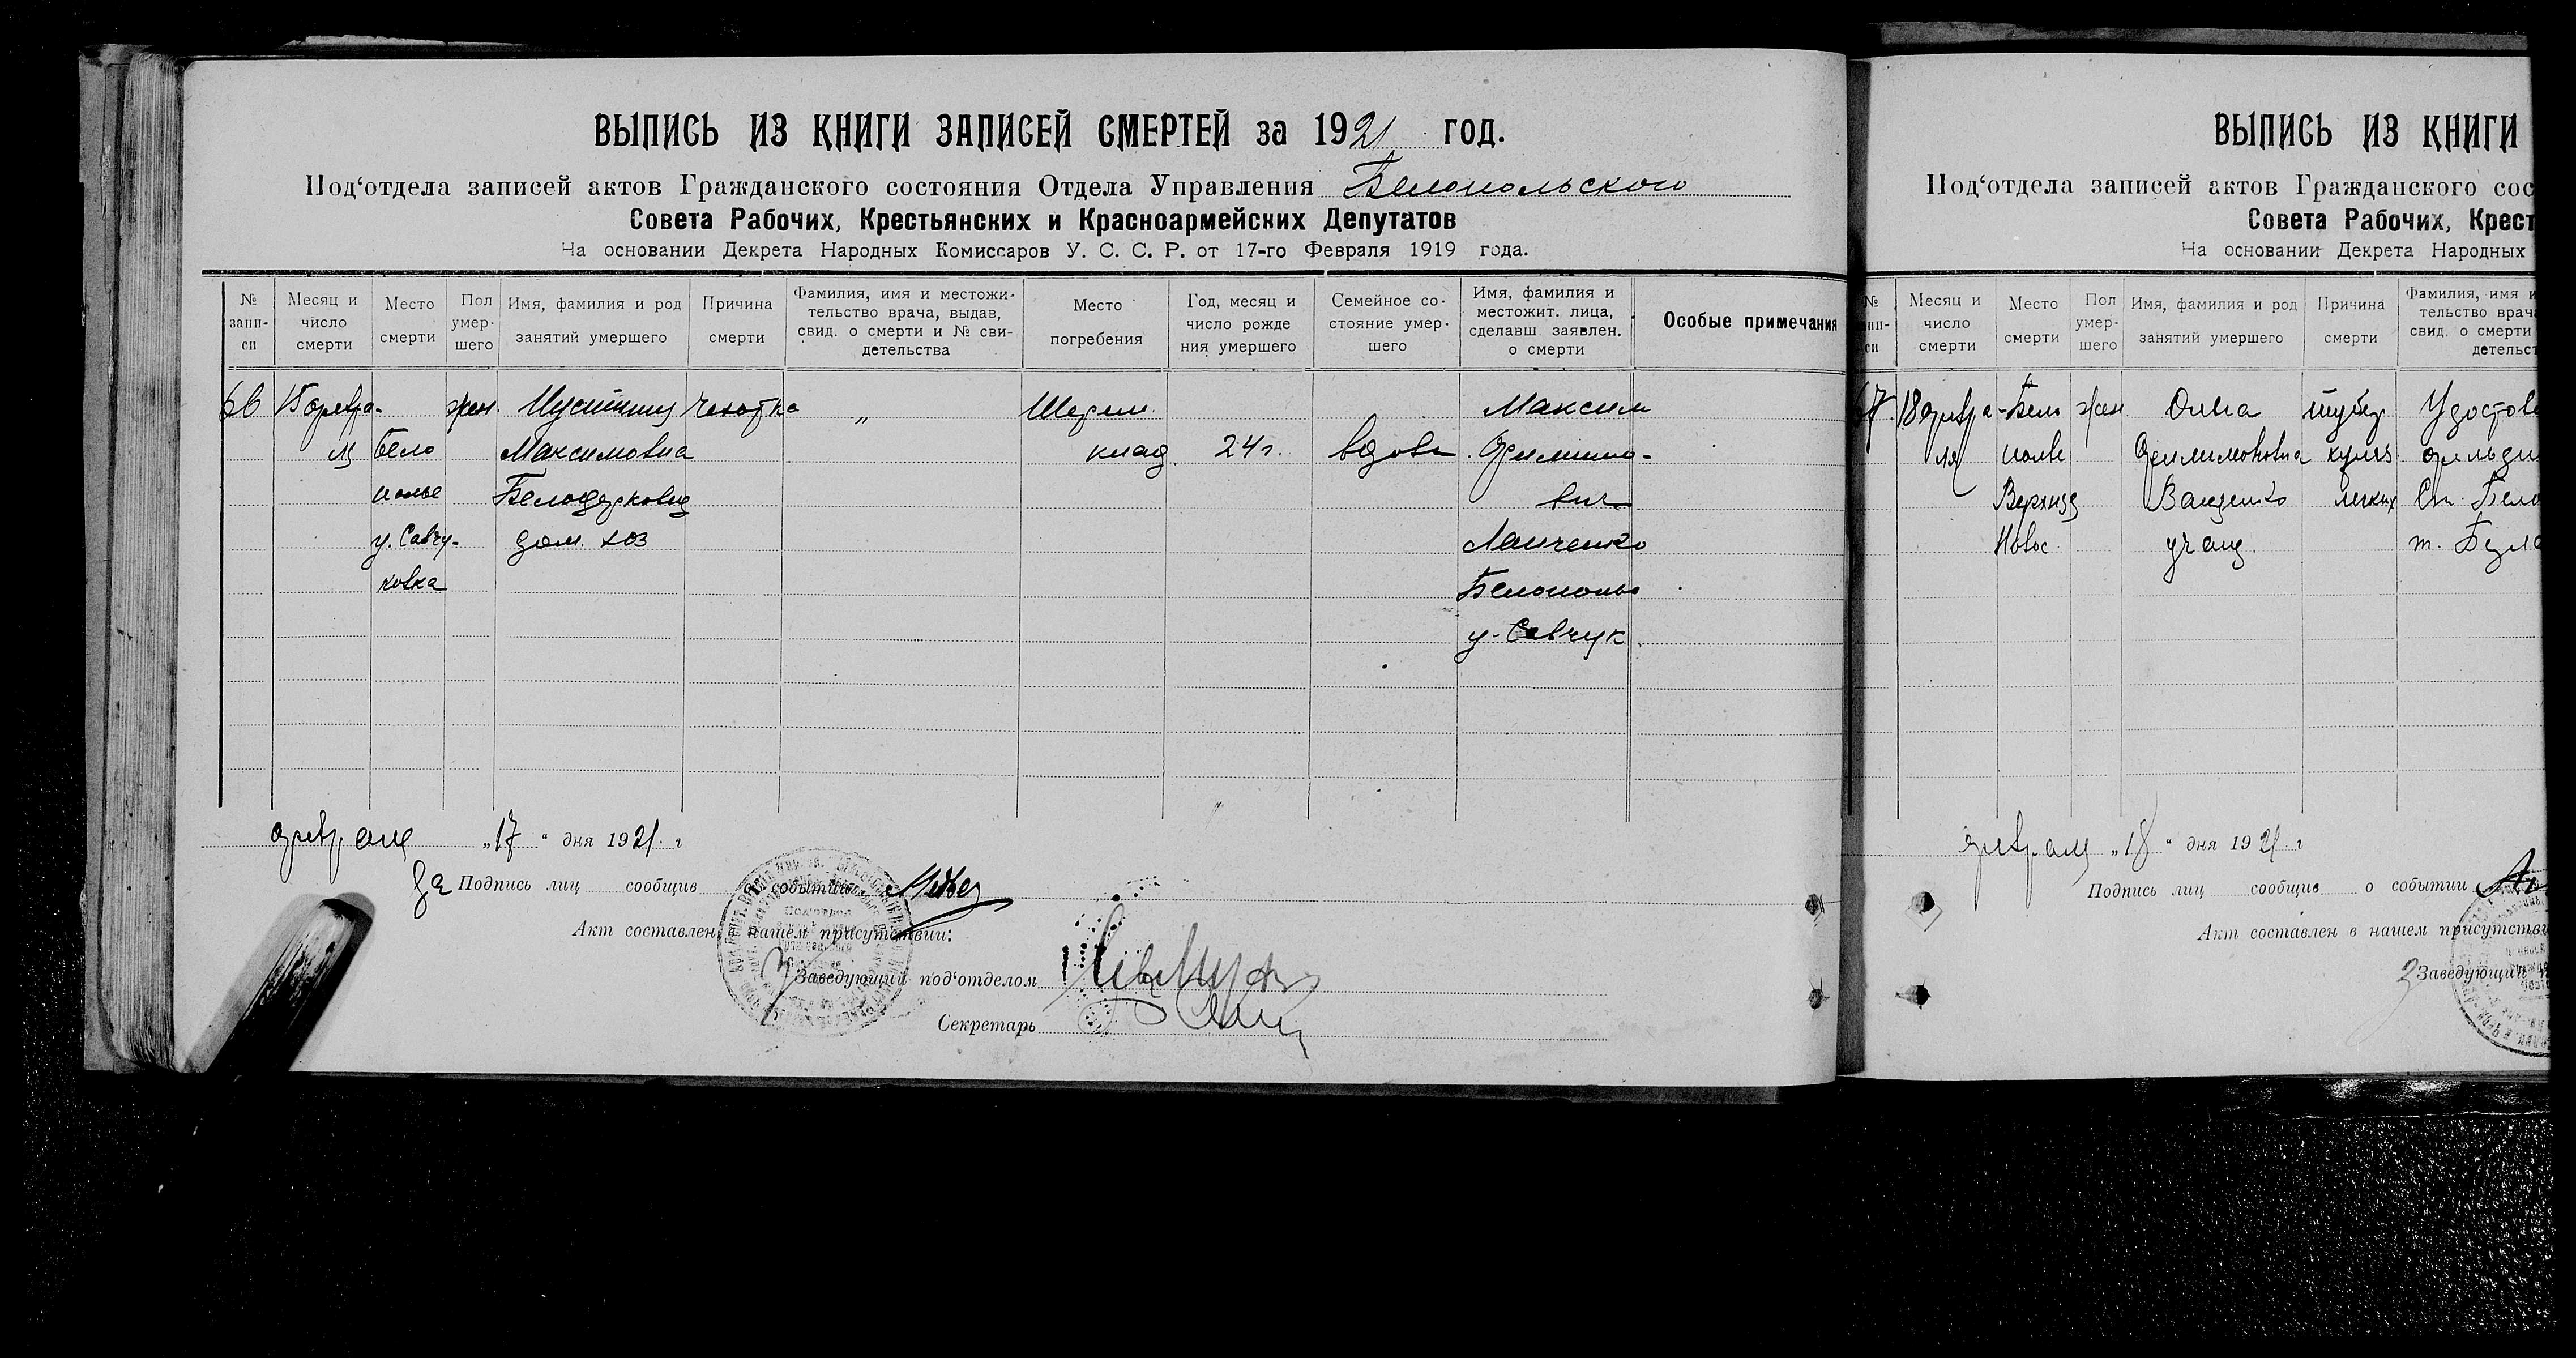 ВЫПИСЬ ИЗ КНИГИ ЗАПИСЕЙ СМЕРТЕЙ за 1921 год.
Под‘отдела записей актов Гражданского состояния Отдела Управления Белопольского
Совета Рабочих, Крестьянских и Красноармейских Депутатов
На основании Декрета Народных Комиссаров У. С. С. Р. от 17-го Февраля 1919 года.
№ запи-си
Месяц и число смерти
Место смерти
Пол умер-шего
Имя, фамилия и род занятий умершего
Причина смерти
Фамилия, имя и местожи-тельство врача, выдав, свид. о смерти и № сви-детельства
Место погребения
Год, месяц и число рожде ния умершего
Семейное со-стояние умер-шего
Имя, фамилия и местожит. лица, сделавш. заявлен. о смерти
Особые примечания
66 15 февра- жен. чахотка „ Максим
ля Бело Максимовна клад. 24 г. вдова Филимоно-
полье вич
у. Савчу- дом. хоз Ланченко
ковка Белополье
у. Савчук
февраля „17“ дня 1921 г
За Подпись лиц сообщив о событии
Акт составлен в нашем присутствии:
Заведующий под‘отделом
Секретарь
ВЫПИСЬ ИЗ КНИГИ
Под‘отдела записей актов Гражданского сос
Совета Рабочих, Крест
На основании Декрета Народных
№ пи-си
Месяц и число смерти
Место смерти
Пол умер-шего
Имя, фамилия и род занятий умершего
Причина смерти
Фамилия, имя и тельство врача свид. о смерти детельст
67. 18 февра- Бело жен Ольга тубер Удостове
ля полье Филимоновна кулез
легких Ст. Бело
Новос.
февраля „18“ дня 1921 г
Подпись лиц сообщив о событии
Акт составлен в нашем присутстви
Заведующий п